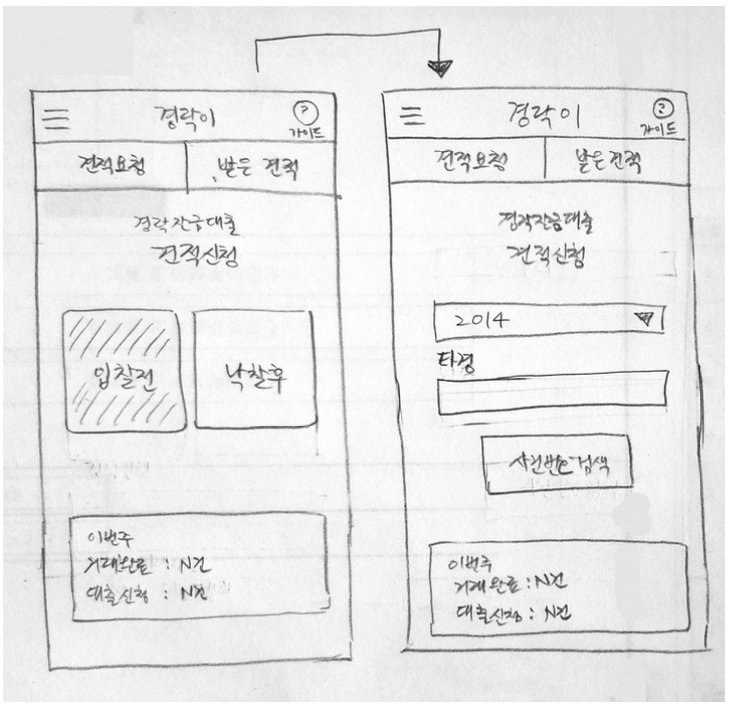 경락이
?
가이드
견적요청
받은 견적
경락잔금대출
견적신청
입찰전
낙찰후
이번주
거래완료 : N건
대출신청 : N건
경락이
?
가이드
견적요청
받은 견적
경락잔금대출
견적신청
2014
타경
사건번호 검색
이번주
거래완료 : N건
대출신청 : N건